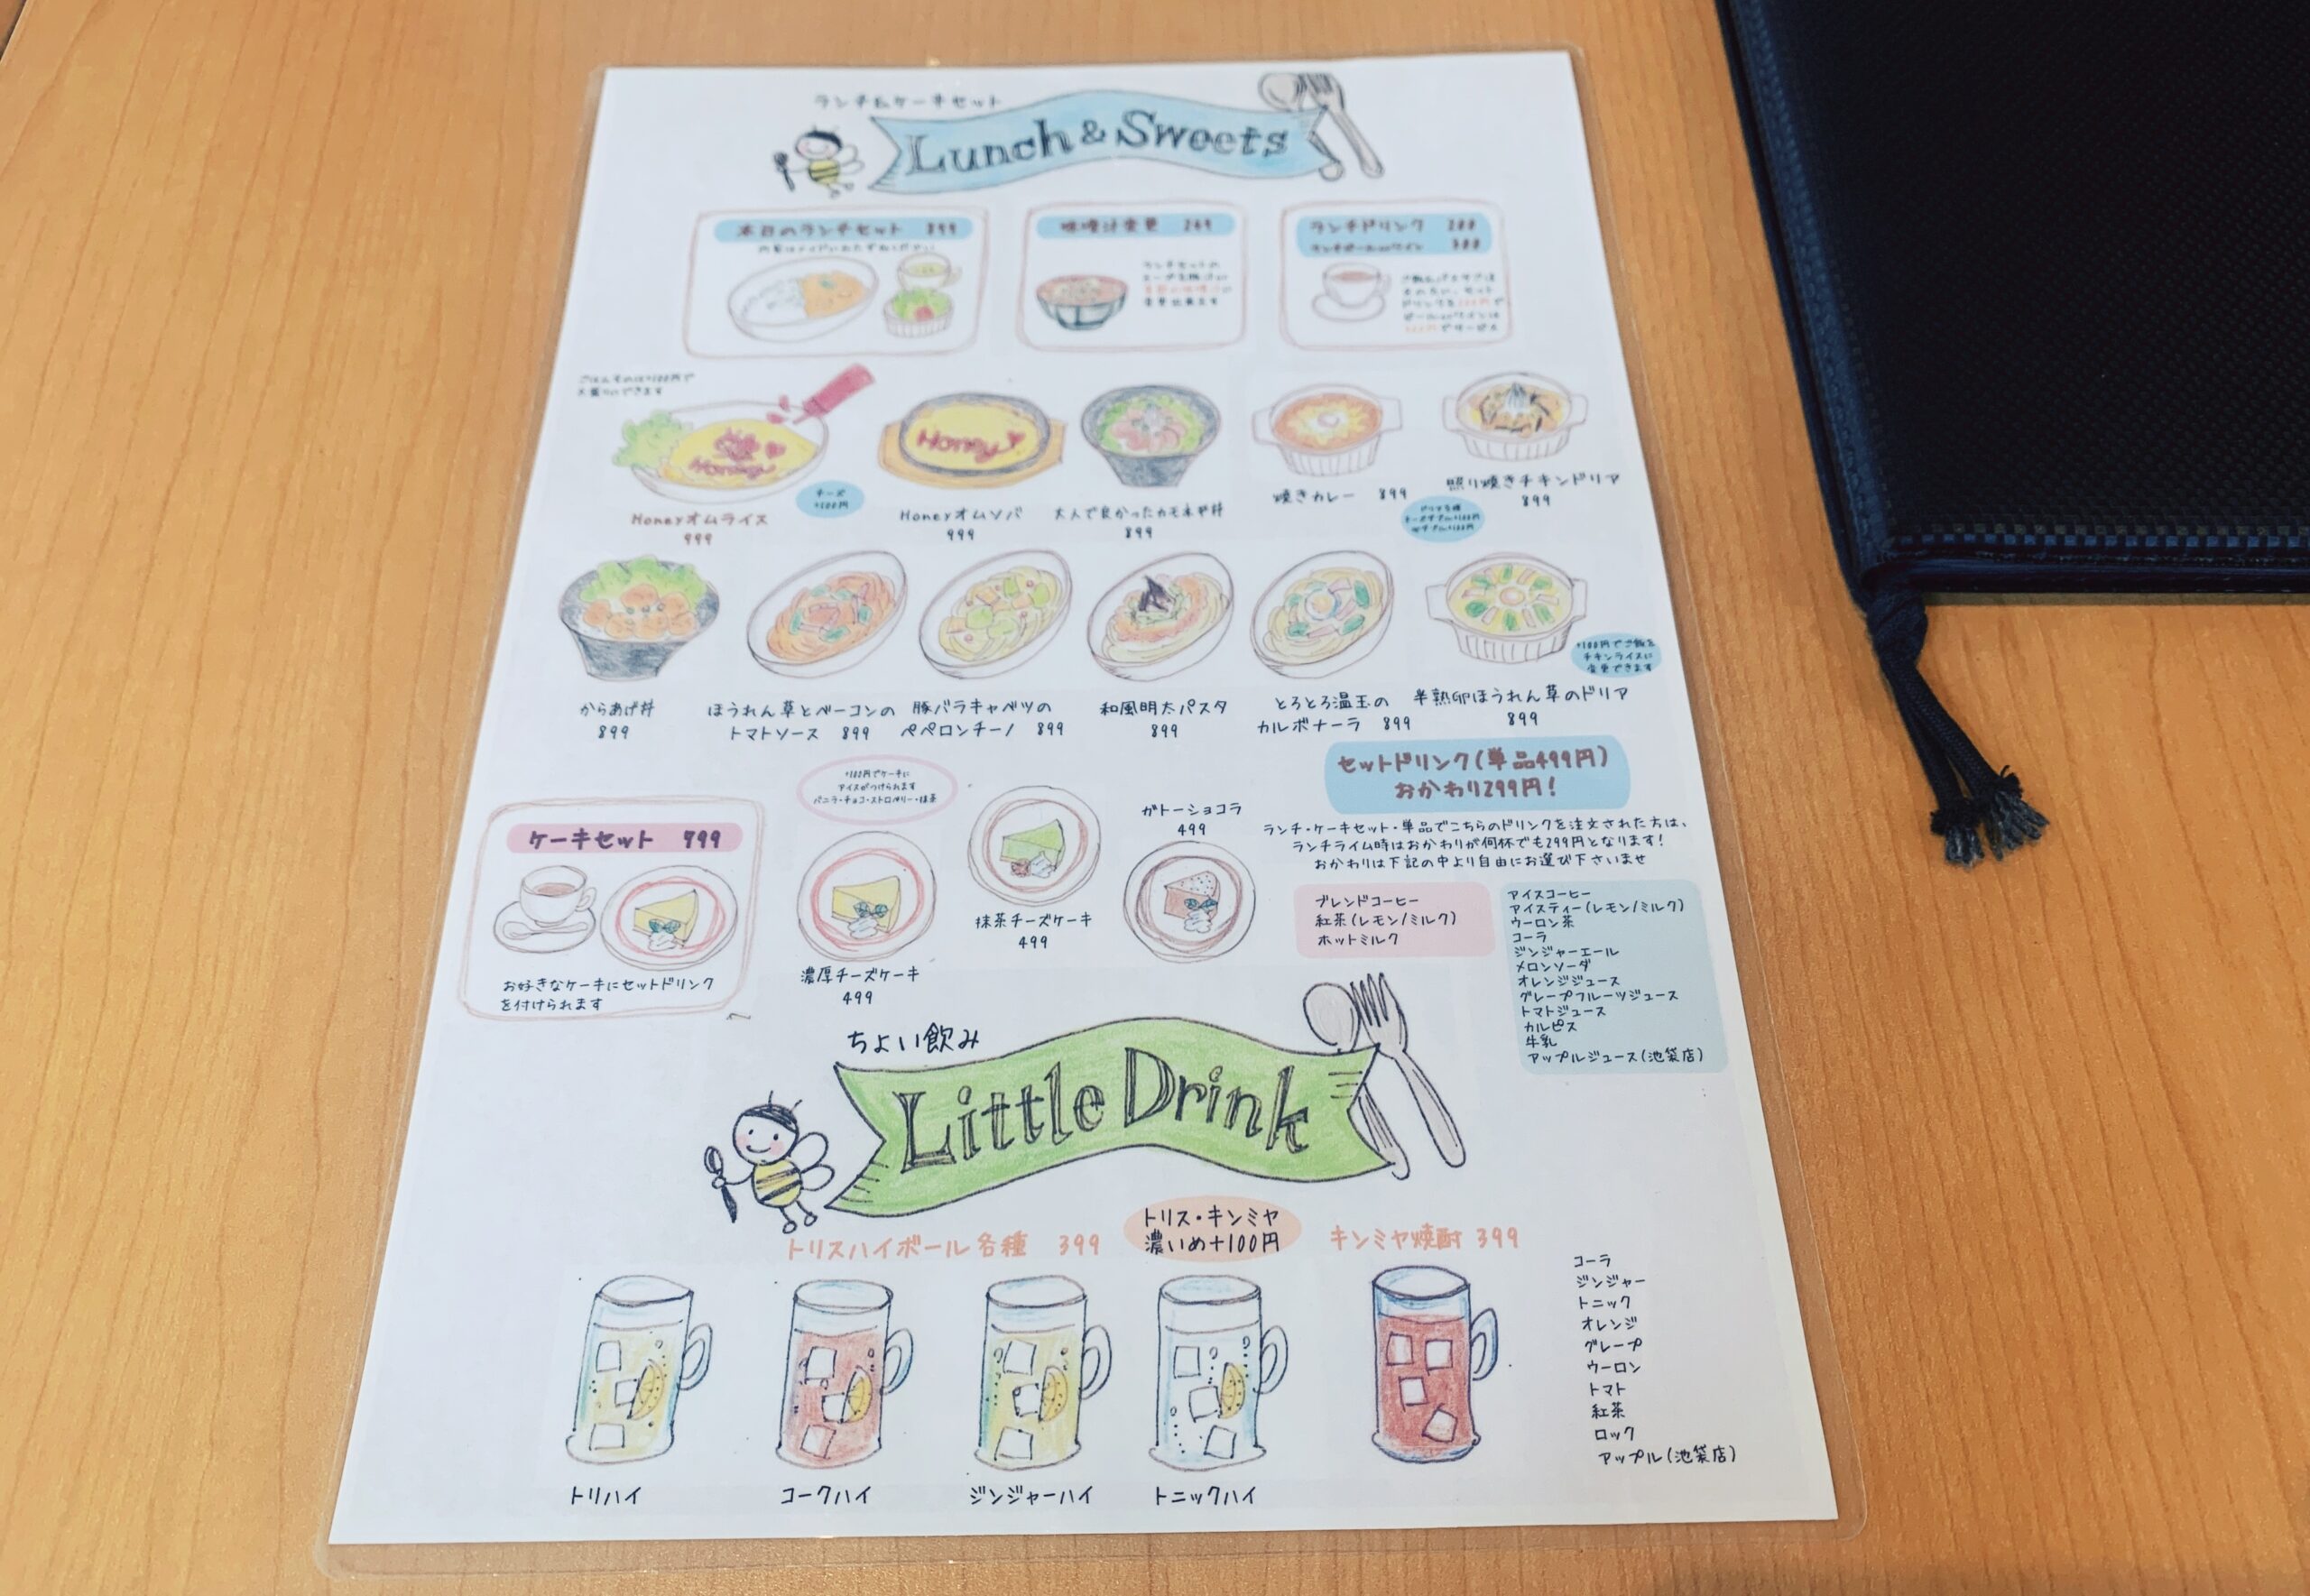 ランチ&ケーキセット
Lunch & Sweets
本日のランチセット 899
味噌汁変更 269
ランチドリンク 200
ごはんものは+100円で
大盛りにできます
Honey
Honey
チーズ
+100円
Honeyオムライス
999
Honeyオムソバ
999
大人で良かったカモネギ丼
899
焼きカレー 899
照り焼きチキンドリア
899
+100円でご飯を
チキンライスに
変更できます
からあげ丼
899
ほうれん草とベーコンの
トマトソース 899
豚バラキャベツの
ペペロンチーノ 899
和風明太パスタ
899
とろとろ温玉の
カルボナーラ 899
半熟卵ほうれん草のドリア
899
セットドリンク(単品499円)
おかわり299円!
ランチ・ケーキセット・単品でこちらのドリンクを注文された方は、
ランチライム時はおかわりが何杯でも299円となります!
おかわりは下記の中より自由にお選び下さいませ
+100円でケーキに
アイスがつけられます
バニラ・チョコ・ストロベリー・抹茶
ケーキセット 799
お好きなケーキにセットドリンク
を付けられます
濃厚チーズケーキ
499
抹茶チーズケーキ
499
ガトーショコラ
499
ブレンドコーヒー
紅茶(レモン/ミルク)
ホットミルク
アイスコーヒー
アイスティー(レモン/ミルク)
ウーロン茶
コーラ
ジンジャーエール
メロンソーダ
オレンジジュース
グレープフルーツジュース
トマトジュース
カルピス
牛乳
アップルジュース(池袋店)
ちょい飲み
Little Drink
トリスハイボール各種 399
トリス・キンミヤ
濃いめ+100円
キンミヤ焼酎 399
トリハイ
コークハイ
ジンジャーハイ
トニックハイ
コーラ
ジンジャー
トニック
オレンジ
グレープ
ウーロン
トマト
紅茶
ロック
アップル(池袋店)